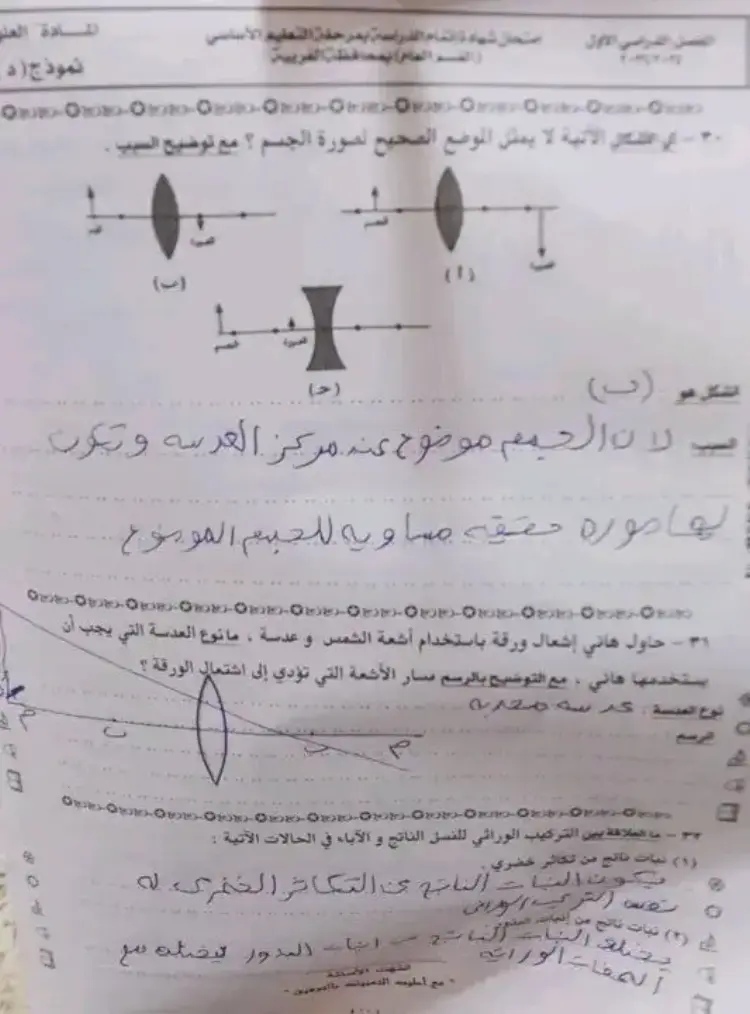 الفصل الدراسي الأول
امتحان شهادة إتمام الدراسة بمرحلة التعليم الأساسي
(القسم العام) بمحافظة الغربية
المادة العلو
نموذج (د
٣٠ - أي الأشكال الآتية لا يمثل الموضع الصحيح لصورة الجسم ؟ مع توضيح السبب .
الجسم
الصورة
(ب)
الجسم
(أ)
الجسم
الصورة
(جـ)
الشكل هو (ب)
السبب لان الجسم موضوع عند مركز العدسه وتكون
لها صوره حقيقيه مساويه للجسم الموضوع
٣١ - حاول هاني إشعال ورقة باستخدام أشعة الشمس و عدسة ، ما نوع العدسة التي يجب أن
يستخدمها هاني ، مع التوضيح بالرسم مسار الأشعة التي تؤدي إلى اشتعال الورقة ؟
نوع العدسة : عدسه محدبه
الرسم
م ب ب م
٣٢ - ما العلاقة بين التركيب الوراثي للنسل الناتج و الآباء في الحالات الآتية :
(١) نبات ناتج من تكاثر خضري .
يكون النبات الناتج عن التكاثر الخضرى له
نفس التركيب الوراثى
(٢) نبات ناتج من إنبات البذور
يختلف النبات الناتج من انبات البذور فيختلف مع
الصفات الوراثيه
انتهت الأسئلة
- مع أطيب التمنيات بالتوفيق -